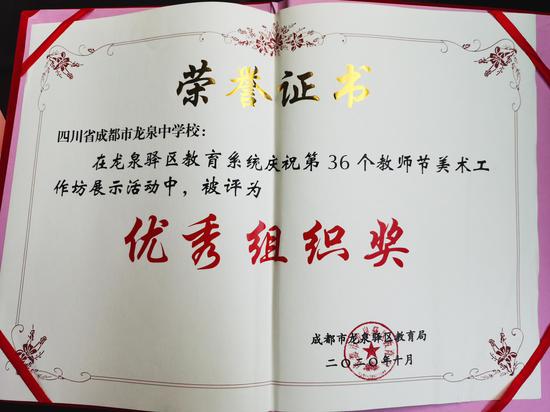 荣誉证书
四川省成都市龙泉中学校：
在龙泉驿区教育系统庆祝第36个教师节美术工
作坊展示活动中，被评为
优秀组织奖
成都市龙泉驿区教育局
二〇二〇年十月